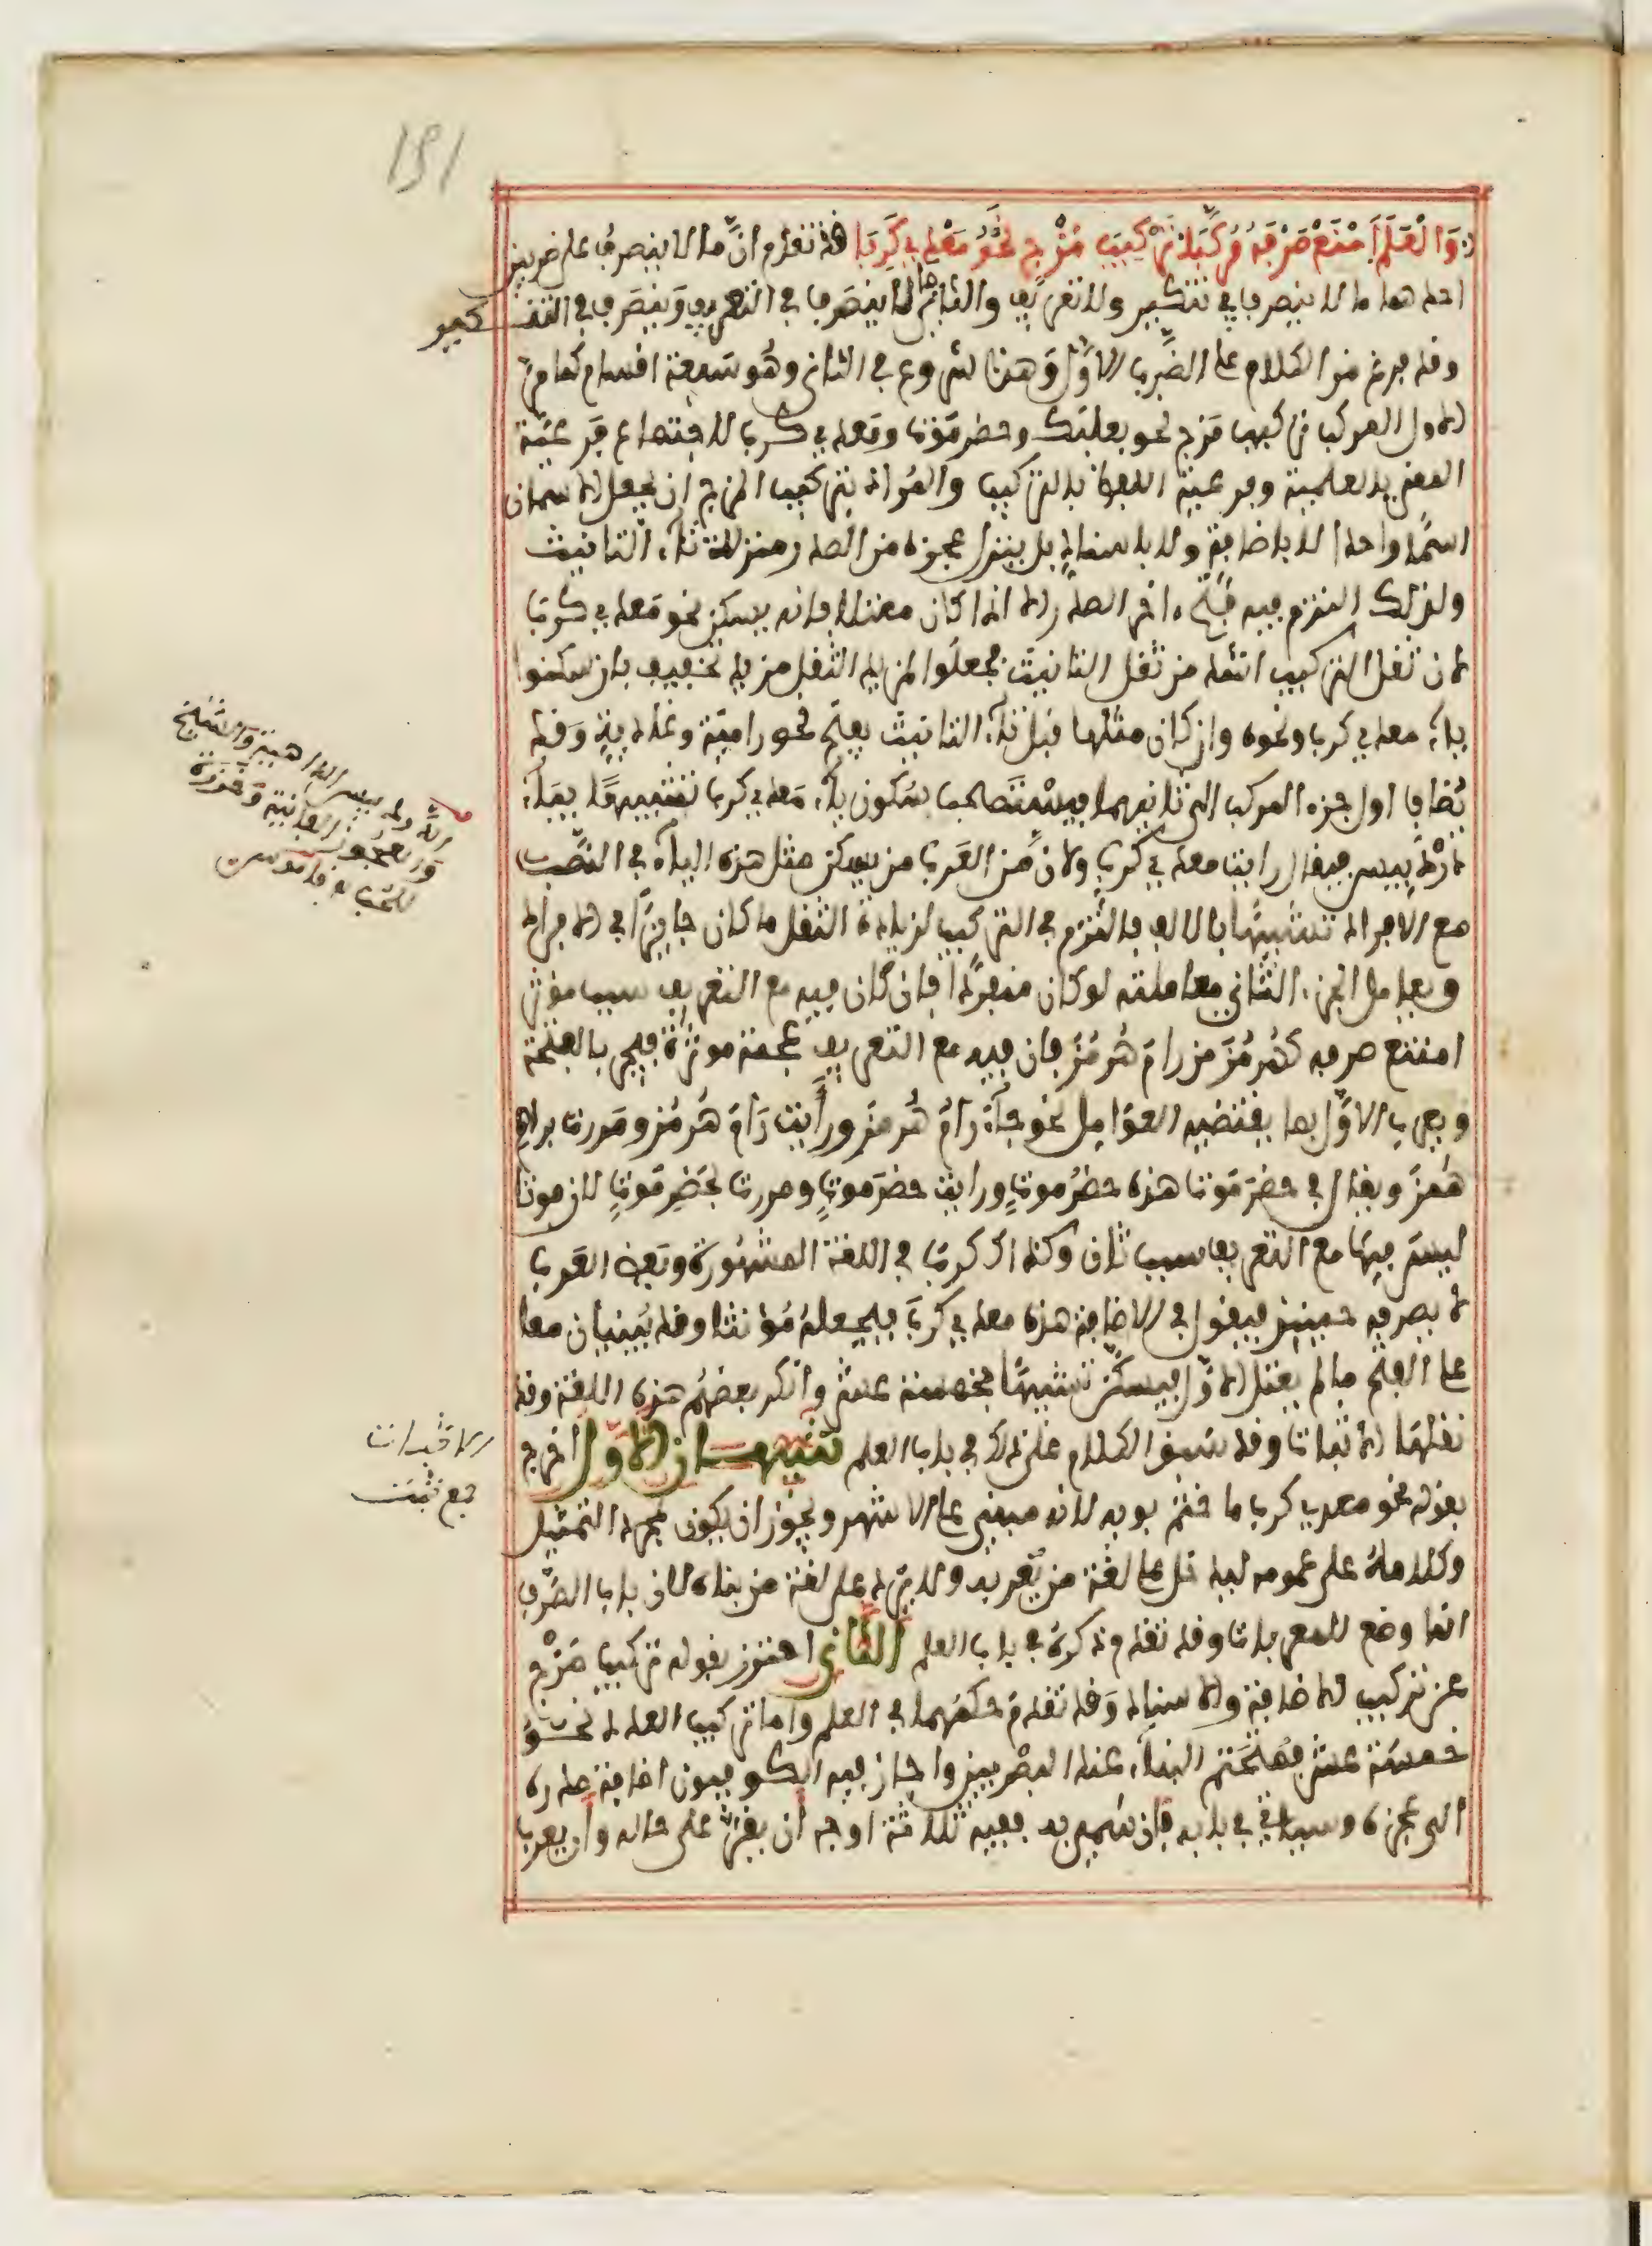 151
وَالْعَلَمَ امْنَعْ صَرْفَهُ مُرَكَّبَا تَرْكِيبَ مَزْجٍ نَحْوُ مَعْدِي كَرِبَا قد تقدم انّ ما لا ينصرف على ضربين
احدهما ما لا ينصرف في تنكير ولا تعريف والثاني ما لا ينصرف في التعريف وينصرف في التنكير
وقد فرغ من الكلام على الضرب الاوّل وهذا شروع في الثاني وهو سبعة اقسام كما مرّ
الاول المركب تركيب مزج نحو بعلبك وحضرموت ومعدي كرب لاجتماع فرعيّة
المعنى بالعلمية وفرعية اللفظ بالتركيب والمراد بتركيب المزج ان يجعل الاسمان
اسما واحدا لا باضافة ولا باسناد بل ينزل عجزه من الصدر منزلة تاء التانيث
ولذلك التزم فيه فتح ءاخر الصدر الا اذا كان معتلا فانه يسكن نحو معدي كرب
لان ثقل التركيب اشد من ثقل التانيث فجعلوا لمزيد الثقل مزيد تخفيف بان سكنوا
ياء معدي كرب ونحوه وان كان مثلها قبل تاء التانيث يفتح نحو رامية وغادية وقد
يضاف اول جزءي المركب الى ثانيهما فيستصحب سكون ياء معدي كرب تشبيها بياء
دردبيس فيقال رايت معدي كرب ولان من العرب من يسكن مثل هذه الياء في النصب
مع الافراد تشبيها بالالف فالتزم في التركيب لزيادة الثقل ما كان جايزا في الافراد
ويعامل الجزء الثاني معاملته لو كان منفردا فان كان فيه مع التعريف سبب موثر
امتنع صرفه كهرمز من رام هرمز فان فيه مع التعريف عجمة موثرة فيجر بالفتحة
ويعرب الاوّل بما يقتضيه العوامل نحو جاء رام هرمز ورايت رام هرمز ومررت برام
هرمز ويقال في حضرموت هذه حضرموت ورايت حضرموت ومررت بحضرموت لان موتا
ليس فيها مع التعريف سبب ثان وكذلك كرب في اللغة المشهورة وبعض العرب
لا يصرفه حينئذ فيقول في الاضافة هذه معدي كرب فيجعله مونثا وقد يبنيان معا
على الفتح ما لم يعتل الاوّل فيسكن تشبيها بخمسة عشر وانكر بعضهم هذه اللغة وقد
نقلها الاثبات وقد سبق الكلام على ذلك في باب العلم تنبيهان الاول اخرج
بقوله نحو معدي كرب ما ختم بويه لانه مبني على الاشهر ويجوز ان يكون لمجرد التمثيل
وكلامه على عمومه ليدخل على لغة من يعربه ولا يرد على لغة من بناه لان باب الصرف
انما وضع للمعربات وقد تقدم ذكره في باب العلم الثاني احترز بقوله تركيب مزج
عن تركيب الاضافة والاسناد وقد تقدم حكمهما في العلم واما تركيب العدد نحو
خمسة عشر فمتحتم البناء عند البصريين واجاز فيه الكوفيون اضافة صدره
الى عجزه وسياتي في بابه فان سمي به ففيه ثلاثة اوجه ان يقر على حاله وان يعرب
الدردبيس الداهية والشيخ
والعجوز الفانية وخرزة
للحب ه قاموس
الاثبات
جمع ثبت